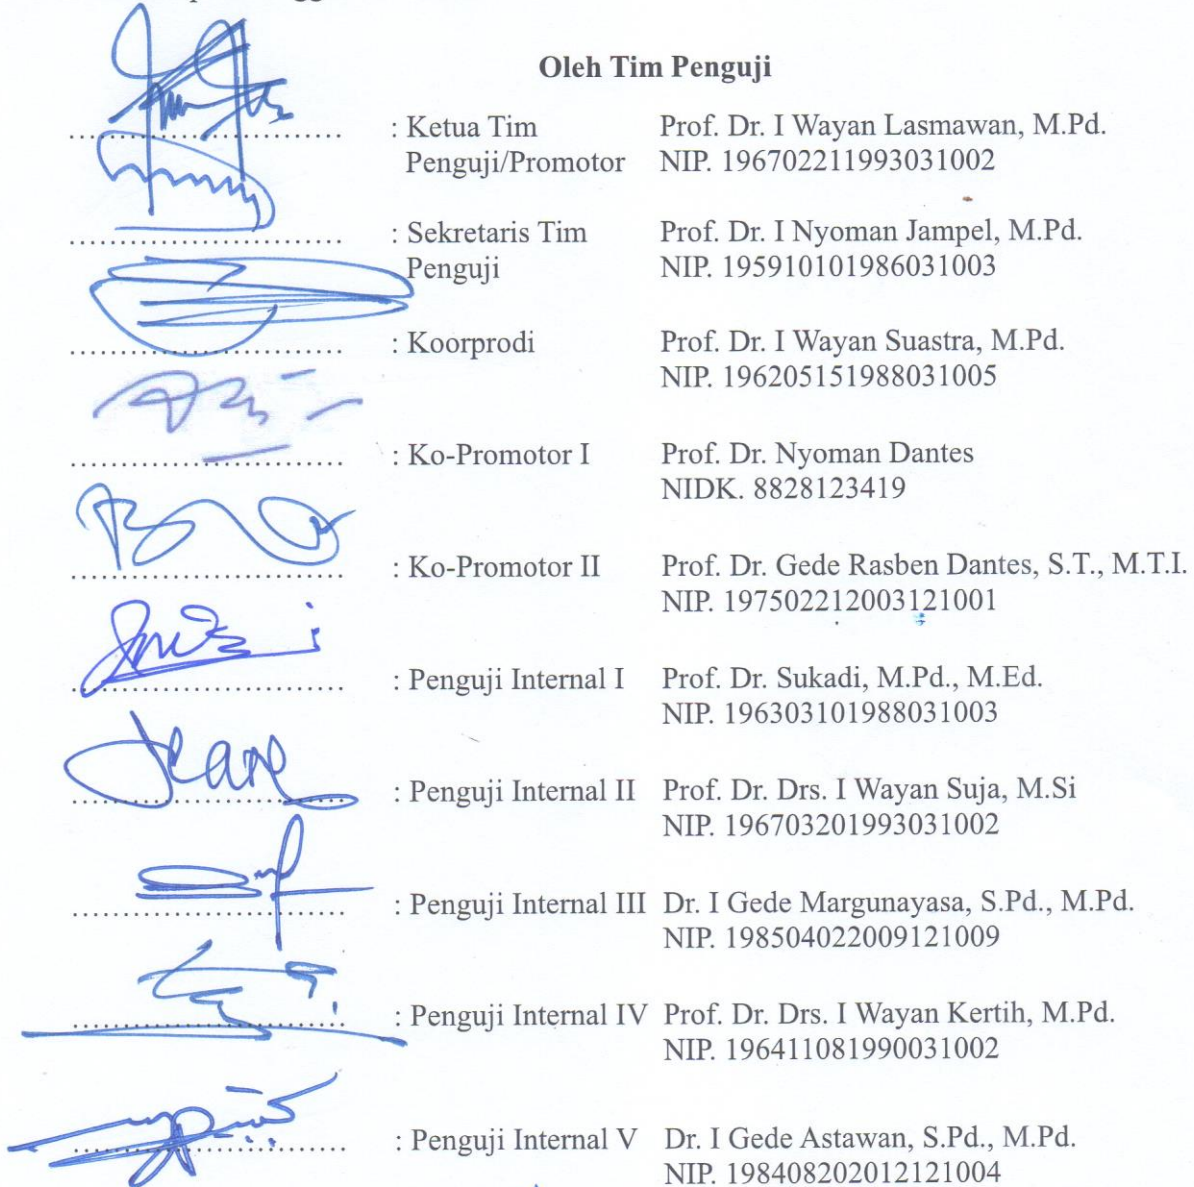 Oleh Tim Penguji
........................... : Ketua Tim Prof. Dr. I Wayan Lasmawan, M.Pd.
Penguji/Promotor NIP. 196702211993031002
........................... : Sekretaris Tim Prof. Dr. I Nyoman Jampel, M.Pd.
Penguji NIP. 195910101986031003
........................... : Koorprodi Prof. Dr. I Wayan Suastra, M.Pd.
NIP. 196205151988031005
........................... : Ko-Promotor I Prof. Dr. Nyoman Dantes
NIDK. 8828123419
........................... : Ko-Promotor II Prof. Dr. Gede Rasben Dantes, S.T., M.T.I.
NIP. 197502212003121001
........................... : Penguji Internal I Prof. Dr. Sukadi, M.Pd., M.Ed.
NIP. 196303101988031003
........................... : Penguji Internal II Prof. Dr. Drs. I Wayan Suja, M.Si
NIP. 196703201993031002
........................... : Penguji Internal III Dr. I Gede Margunayasa, S.Pd., M.Pd.
NIP. 198504022009121009
........................... : Penguji Internal IV Prof. Dr. Drs. I Wayan Kertih, M.Pd.
NIP. 196411081990031002
........................... : Penguji Internal V Dr. I Gede Astawan, S.Pd., M.Pd.
NIP. 198408202012121004